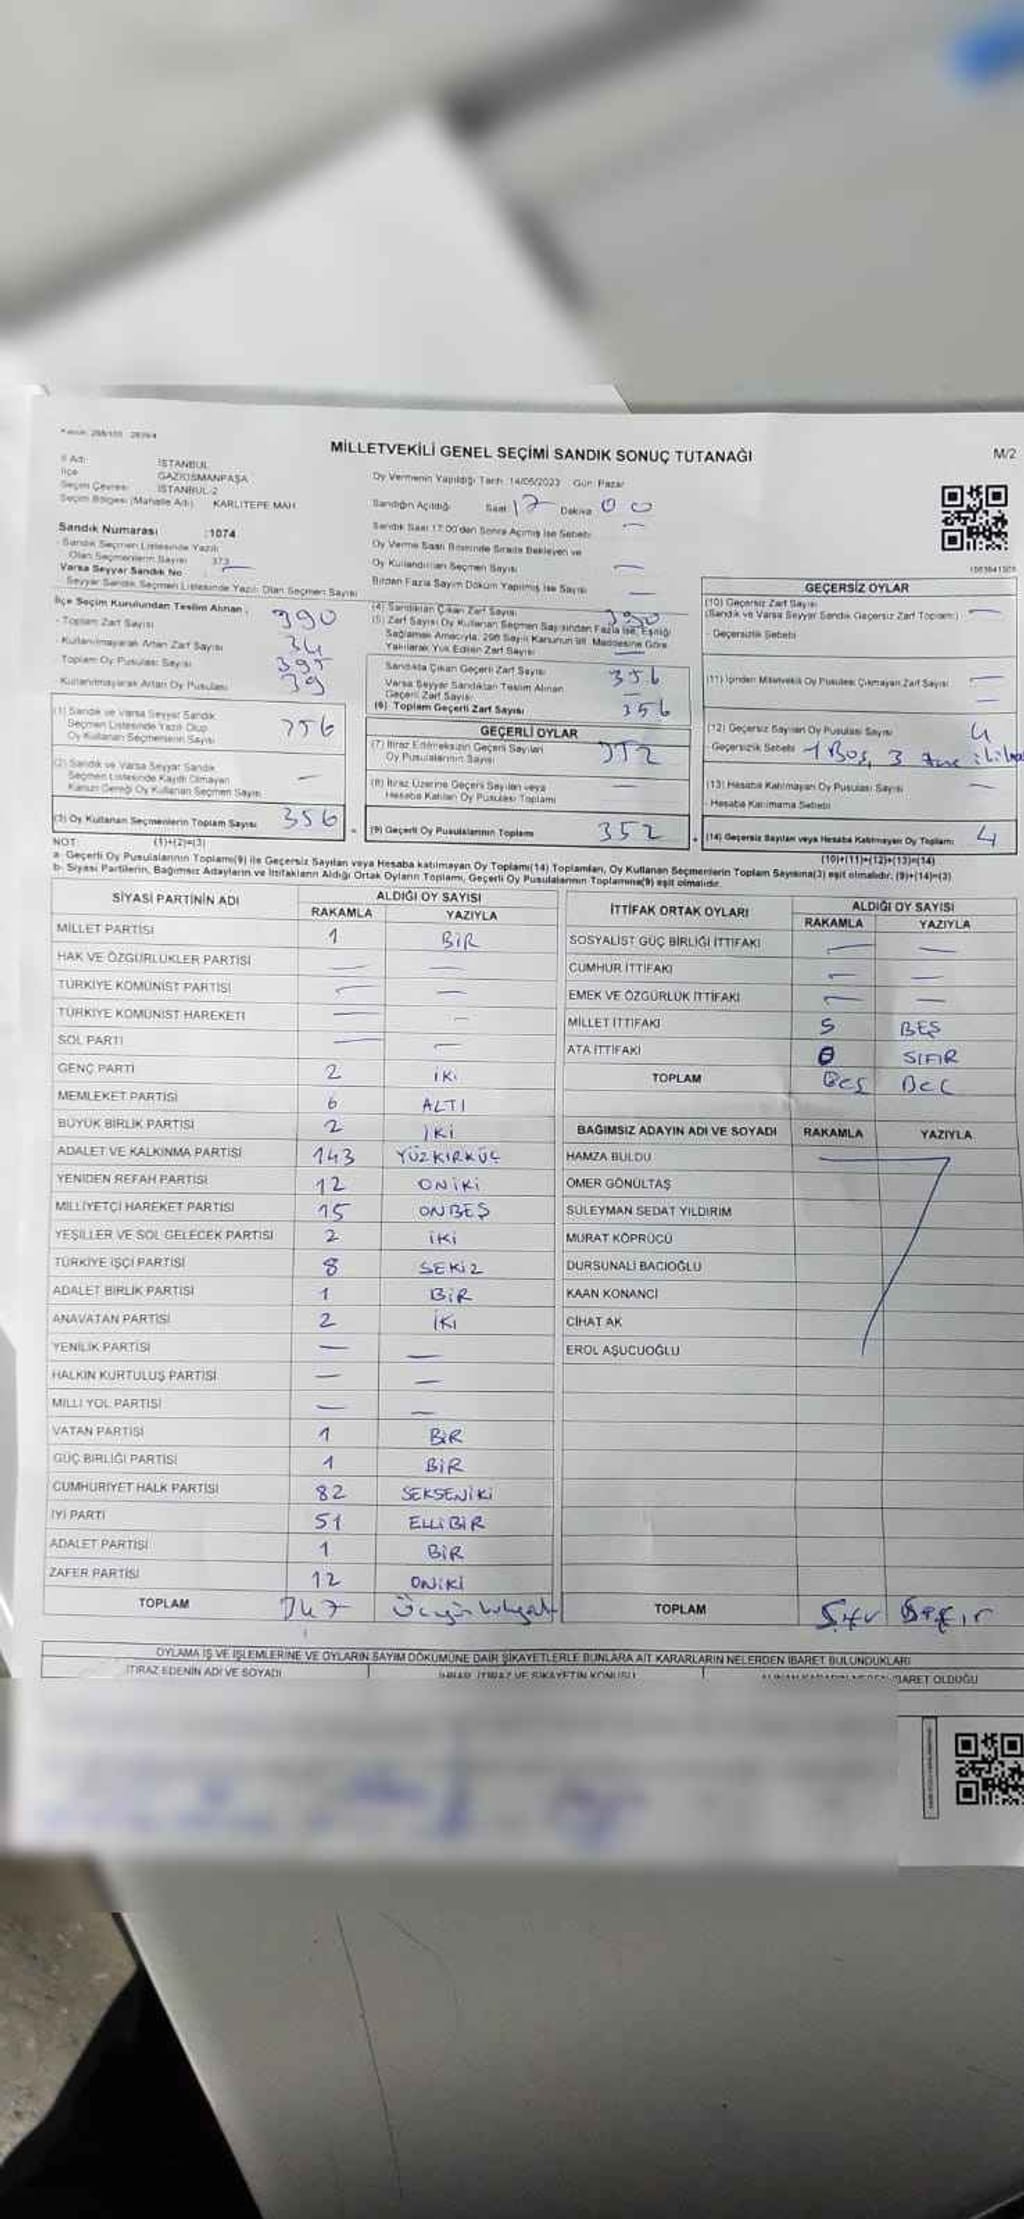 MİLLETVEKİLİ GENEL SEÇİMİ SANDIK SONUÇ TUTANAĞI
M/2
İl Adı: İSTANBUL
İlçe GAZİOSMANPAŞA
Seçim Çevresi İSTANBUL-2
Seçim Bölgesi (Mahalle Adı) KARLITEPE MAH
Sandık Numarası :1074
Sandık Seçmen Listesinde Yazılı
Olan Seçmenlerin Sayısı 373
Varsa Seyyar Sandık No —
Seyyar Sandık Seçmen Listesinde Yazılı Olan Seçmen Sayısı
Oy Vermenin Yapıldığı Tarih :14/05/2023 Gün: Pazar
Sandığın Açıldığı Saat 17 Dakika 00
Sandık Saat 17:00'den Sonra Açılmış İse Sebebi —
Oy Verme Saati Bitiminde Sırada Bekleyen ve
Oy Kullandırılan Seçmen Sayısı —
Birden Fazla Sayım Döküm Yapılmış İse Sayısı —
İlçe Seçim Kurulundan Teslim Alınan
- Toplam Zarf Sayısı 390
- Kullanılmayarak Artan Zarf Sayısı 34
- Toplam Oy Pusulası Sayısı 395
- Kullanılmayarak Artan Oy Pusulası 39
(1) Sandık ve Varsa Seyyar Sandık
Seçmen Listesinde Yazılı Olup
Oy Kullanan Seçmenlerin Sayısı 356
(2) Sandık ve Varsa Seyyar Sandık
Seçmen Listesinde Kayıtlı Olmayan
Kanun Gereği Oy Kullanan Seçmen Sayısı —
(3) Oy Kullanan Seçmenlerin Toplam Sayısı 356
(1)+(2)=(3)
(4) Sandıktan Çıkan Zarf Sayısı
(5) Zarf Sayısı Oy Kullanan Seçmen Sayısından Fazla İse, Eşitliği
Sağlamak Amacıyla, 298 Sayılı Kanunun 98. Maddesine Göre
Yakılarak Yok Edilen Zarf Sayısı —
Sandıkta Çıkan Geçerli Zarf Sayısı 356
Varsa Seyyar Sandıktan Teslim Alınan
Geçerli Zarf Sayısı —
(6) Toplam Geçerli Zarf Sayısı 356
GEÇERLİ OYLAR
(7) İtiraz Edilmeksizin Geçerli Sayılan
Oy Pusulalarının Sayısı 352
(8) İtiraz Üzerine Geçerli Sayılan veya
Hesaba Katılan Oy Pusulası Toplamı —
(9) Geçerli Oy Pusulalarının Toplamı 352
GEÇERSİZ OYLAR
(10) Geçersiz Zarf Sayısı
(Sandık ve Varsa Seyyar Sandık Geçersiz Zarf Toplamı) —
- Geçersizlik Sebebi
(11) İçinden Milletvekili Oy Pusulası Çıkmayan Zarf Sayısı —
(12) Geçersiz Sayılan Oy Pusulası Sayısı 4
- Geçersizlik Sebebi 1 Boş, 3
(13) Hesaba Katılmayan Oy Pusulası Sayısı —
- Hesaba Katılmama Sebebi
(14) Geçersiz Sayılan veya Hesaba Katılmayan Oy Toplamı 4
(10)+(11)+(12)+(13)=(14)
NOT
a- Geçerli Oy Pusulalarının Toplamı(9) ile Geçersiz Sayılan veya Hesaba katılmayan Oy Toplamı(14) Toplamları, Oy Kullanan Seçmenlerin Toplam Sayısına(3) eşit olmalıdır, (9)+(14)=(3)
b- Siyasi Partilerin, Bağımsız Adayların ve İttifakların Aldığı Ortak Oyların Toplamı, Geçerli Oy Pusulalarının Toplamına(9) eşit olmalıdır.
SİYASİ PARTİNİN ADI ALDIĞI OY SAYISI
RAKAMLA YAZIYLA
MİLLET PARTİSİ 1 BİR
HAK VE ÖZGÜRLÜKLER PARTİSİ — —
TÜRKİYE KOMÜNİST PARTİSİ — —
TÜRKİYE KOMÜNİST HAREKETİ — —
SOL PARTİ — —
GENÇ PARTİ 2 İKİ
MEMLEKET PARTİSİ 6 ALTI
BÜYÜK BİRLİK PARTİSİ 2 İKİ
ADALET VE KALKINMA PARTİSİ 143 YÜZKIRKÜÇ
YENİDEN REFAH PARTİSİ 12 ONİKİ
MİLLİYETÇİ HAREKET PARTİSİ 15 ONBEŞ
YEŞİLLER VE SOL GELECEK PARTİSİ 2 İKİ
TÜRKİYE İŞÇİ PARTİSİ 8 SEKİZ
ADALET BİRLİK PARTİSİ 1 BİR
ANAVATAN PARTİSİ 2 İKİ
YENİLİK PARTİSİ — —
HALKIN KURTULUŞ PARTİSİ — —
MİLLİ YOL PARTİSİ — —
VATAN PARTİSİ 1 BİR
GÜÇ BİRLİĞİ PARTİSİ 1 BİR
CUMHURİYET HALK PARTİSİ 82 SEKSENİKİ
İYİ PARTİ 51 ELLİBİR
ADALET PARTİSİ 1 BİR
ZAFER PARTİSİ 12 ONİKİ
TOPLAM 347
İTTİFAK ORTAK OYLARI ALDIĞI OY SAYISI
RAKAMLA YAZIYLA
SOSYALİST GÜÇ BİRLİĞİ İTTİFAKI — —
CUMHUR İTTİFAKI — —
EMEK VE ÖZGÜRLÜK İTTİFAKI — —
MİLLET İTTİFAKI 5 BEŞ
ATA İTTİFAKI 0 SIFIR
TOPLAM Beş Beş
BAĞIMSIZ ADAYIN ADI VE SOYADI RAKAMLA YAZIYLA
HAMZA BULDU
ÖMER GÖNÜLTAŞ
SÜLEYMAN SEDAT YILDIRIM
MURAT KÖPRÜCÜ
DURSUNALİ BACIOĞLU
KAAN KONANCİ
CİHAT AK
EROL AŞUCUOĞLU
TOPLAM
OYLAMA İŞ VE İŞLEMLERİNE VE OYLARIN SAYIM DÖKÜMÜNE DAİR ŞİKAYETLERLE BUNLARA AİT KARARLARIN NELERDEN İBARET BULUNDUKLARI
İTİRAZ EDENİN ADI VE SOYADI